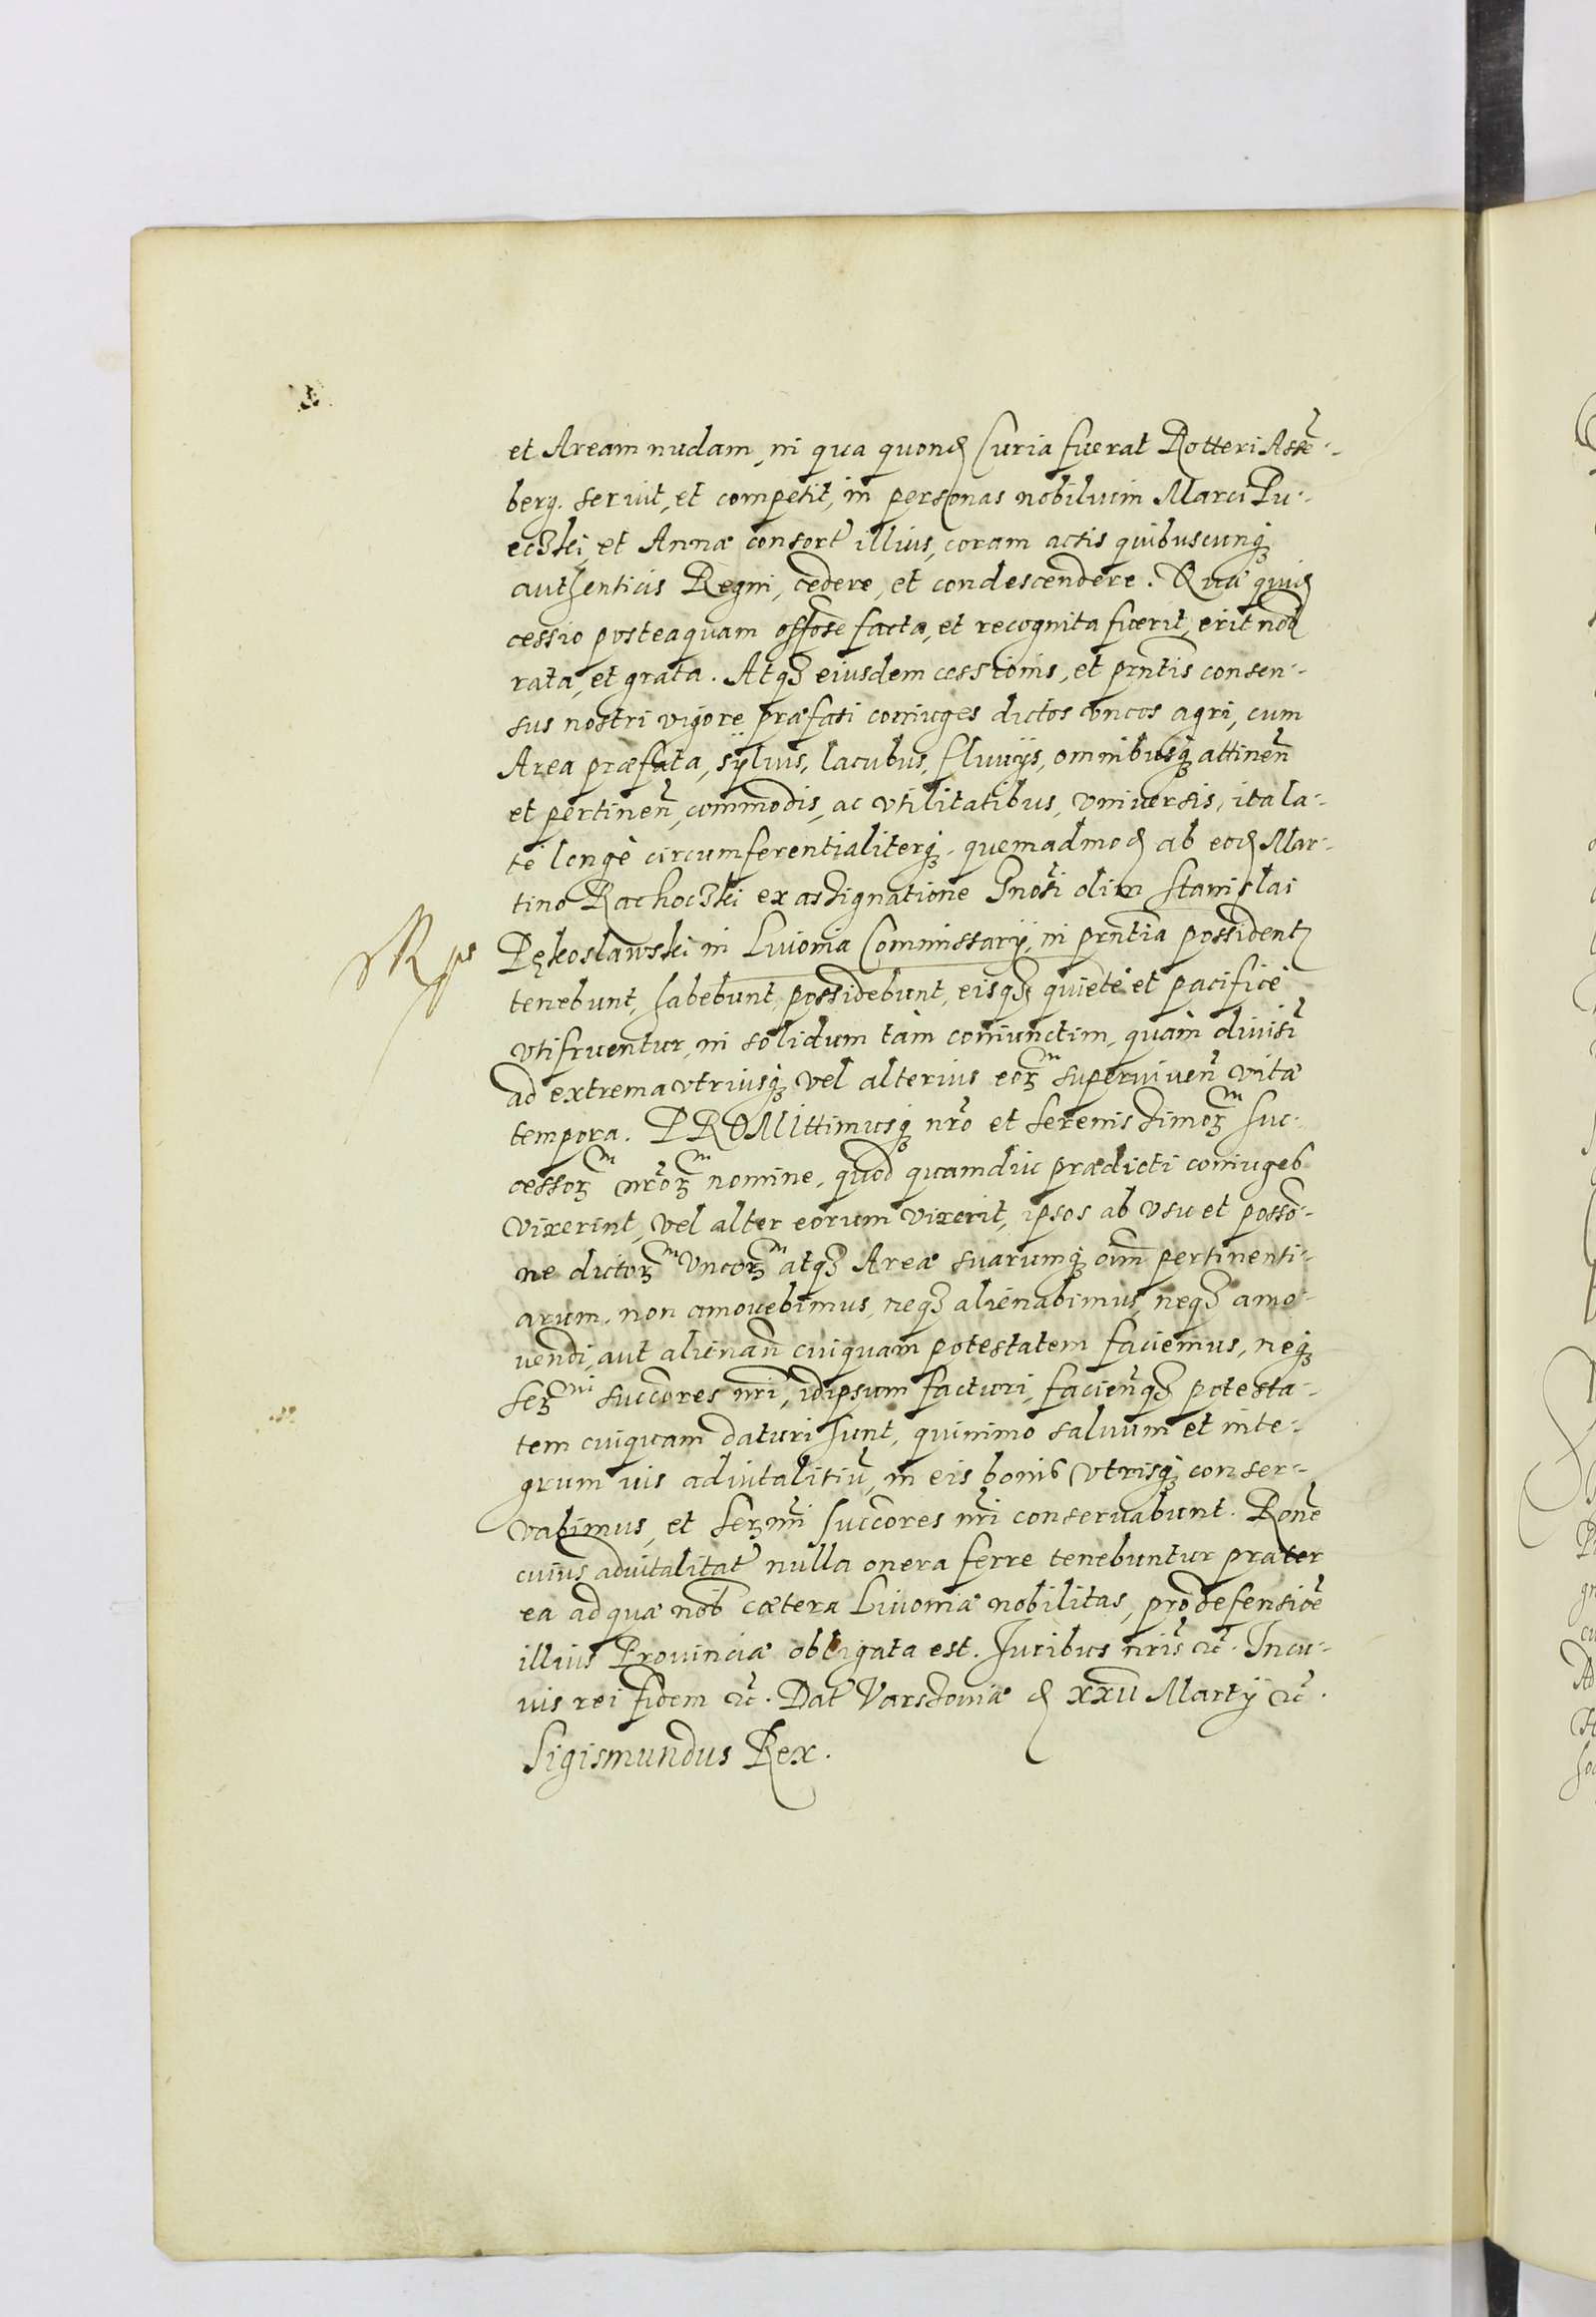 et Aream nudam, in qua quond Curia fuerat Rotteri Asse-
berg. seruit, et competit, in personas nobilium Marci Pu-
eczki, et Annæ consort illius, coram actis quibuscunq
authenticis Regni, cedere, et condescendere. Quæ quid
cessio posteaquam offose facta, et recognita fuerit, erit nob
rata, et grata. Atq eiusdem cessionis, et pñtis consen-
sus nostri vigore præfati coniuges dictos vncos agri, cum
Area præfata, syluis, lacubus, fluuijs, omnibusq attineñ
et pertineñ, commodis, ac vtilitatibus, vniuersis, ita la-
te longè circumferentialiterq, quemadmod ab eod Mar-
tino Rachoczki ex assignatione Gnosi olim Stanislai
Pękoslawski in Liuonia Commissarij, in pñtia possident
tenebunt, habebunt, possidebunt, eisq quietè et pacificè
vtifruentur, in solidum tàm coniunctim, quàm diuisĩ
ad extrema vtriusq vel alterius eorm superuiueñ vitæ
tempora. PROMIttimusq nro et serenissimorm suc-
cessorm nrorm nomine, quod quamdiu prædicti coniuges
vixerint, vel alter eorum vixerit, ipsos ab vsu et posso-
ne dictorm vncorm atq Areæ suarumq oim pertinenti-
arum, non amouebimus, neq alienabimus, neq amo-
uendi, aut alienañ cuiquam potestatem faciemus, neq
Sermi succores nri, idipsum facturi, facieñq potesta-
tem cuiquam daturi sunt, quinimo saluum et inte-
grum ius aduitalitiũ, in eis bonis vtrisq conser-
vabimus, et Sermi succores nri conseruabunt. Rone
cuius aduitalitat nulla onera ferre tenebuntur præter
ea ad quæ nob cætera Liuoniæ nobilitas, pro defensioe
illius Prouinciæ obligata est. Juribus nris etc. In cu-
uis rei fidem etc. Dat Varsouiæ d XXII Martij etc.
Sigismundus Rex.